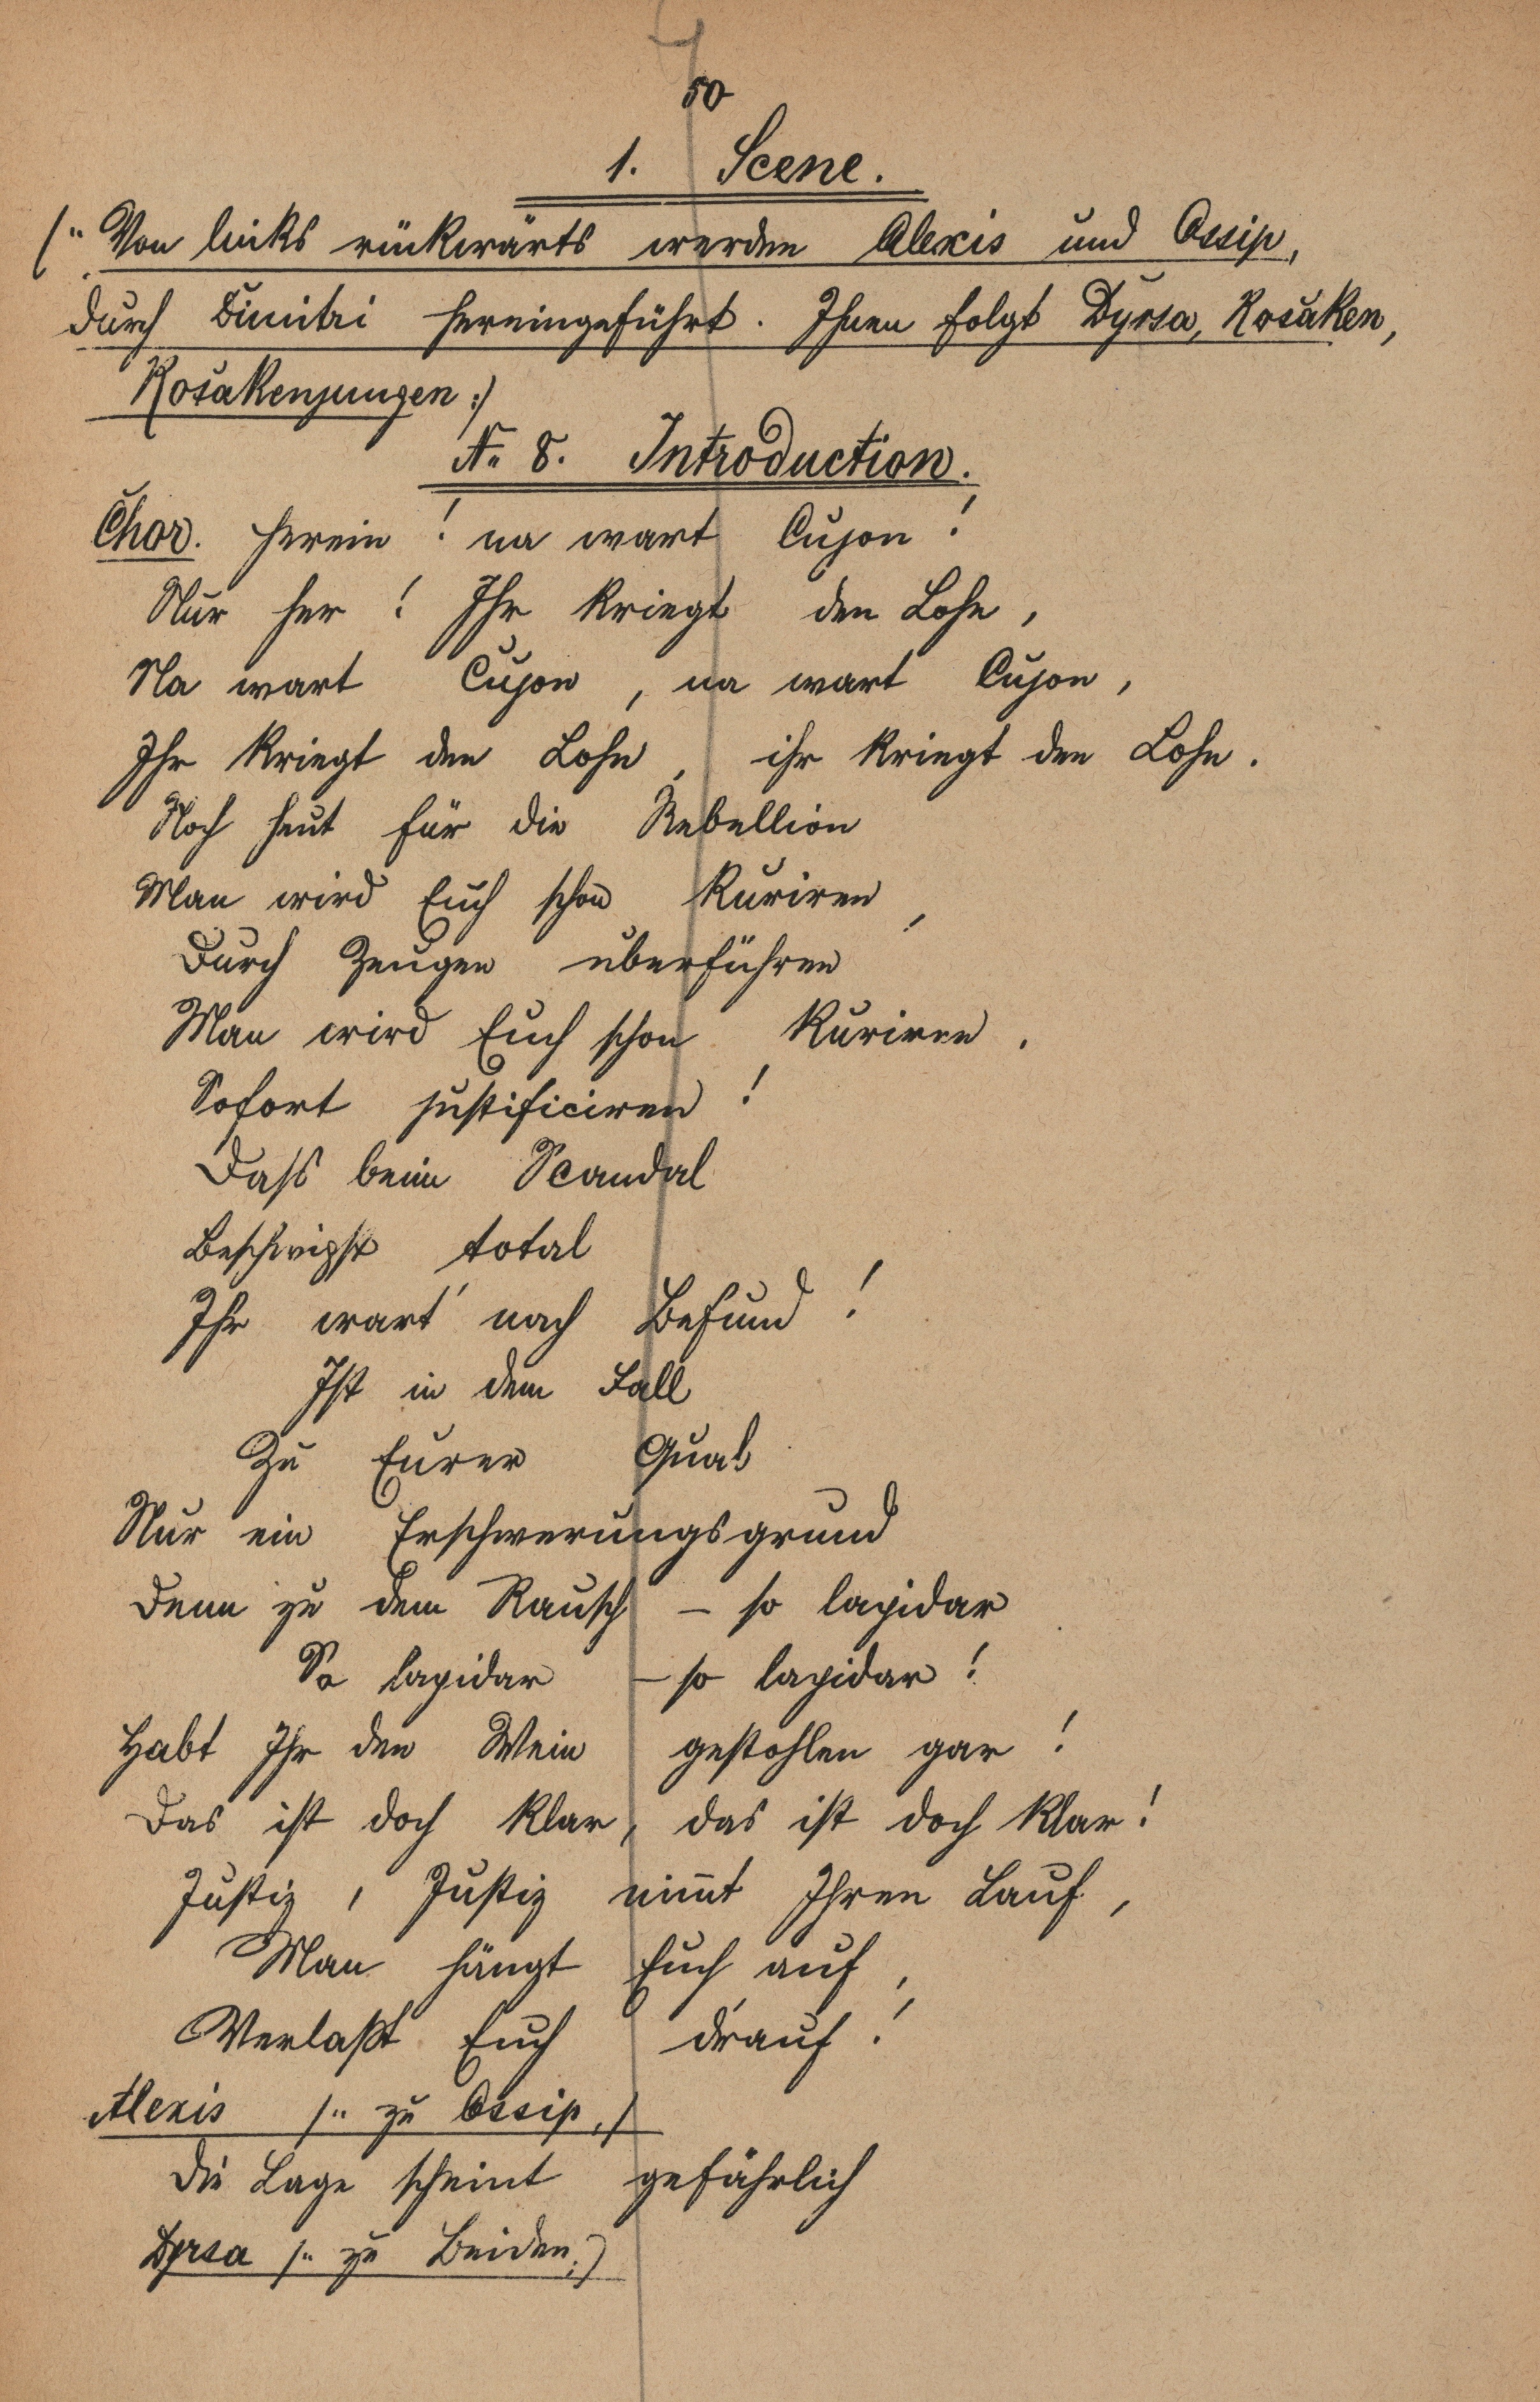 50
1. Scene.
(: Von links rückwärts werden Alexis und Ossip,
durch Dimitri hereingeführt. Ihnen folgt Dyrsa, Kosaken,
Kosakenjungen :)
No 8. Introduction.
Chor. Herein! na wart Cujon!
Nur her! Ihr kriegt den Lohn,
Na wart Cujon, na wart Cujon,
Ihr kriegt den Lohn, ihr kriegt den Lohn.
Noch heut für die Rebellion
Man wird Euch schon kuriren,
Durch Zeugen überführen
Man wird Euch schon kuriren.
Sofort justificiren!
Dass beim Scandal
Beschwipst total
Ihr wart nach Befund!
Ist in dem Fall
Zu Eurer Qual
Nur ein Erschwerungsgrund
Denn zu dem Rausch – so lapidar
So lapidar – so lapidar!
Habt Ihr den Wein gestohlen gar!
Das ist doch klar, das ist doch klar!
Justiz, Justiz nim̄t Ihren Lauf,
Man hängt Euch auf,
Verlaßt Euch d'rauf!
Alexis (: zu Ossip :)
Die Lage scheint gefährlich
Dyrsa (: zu Beiden :)